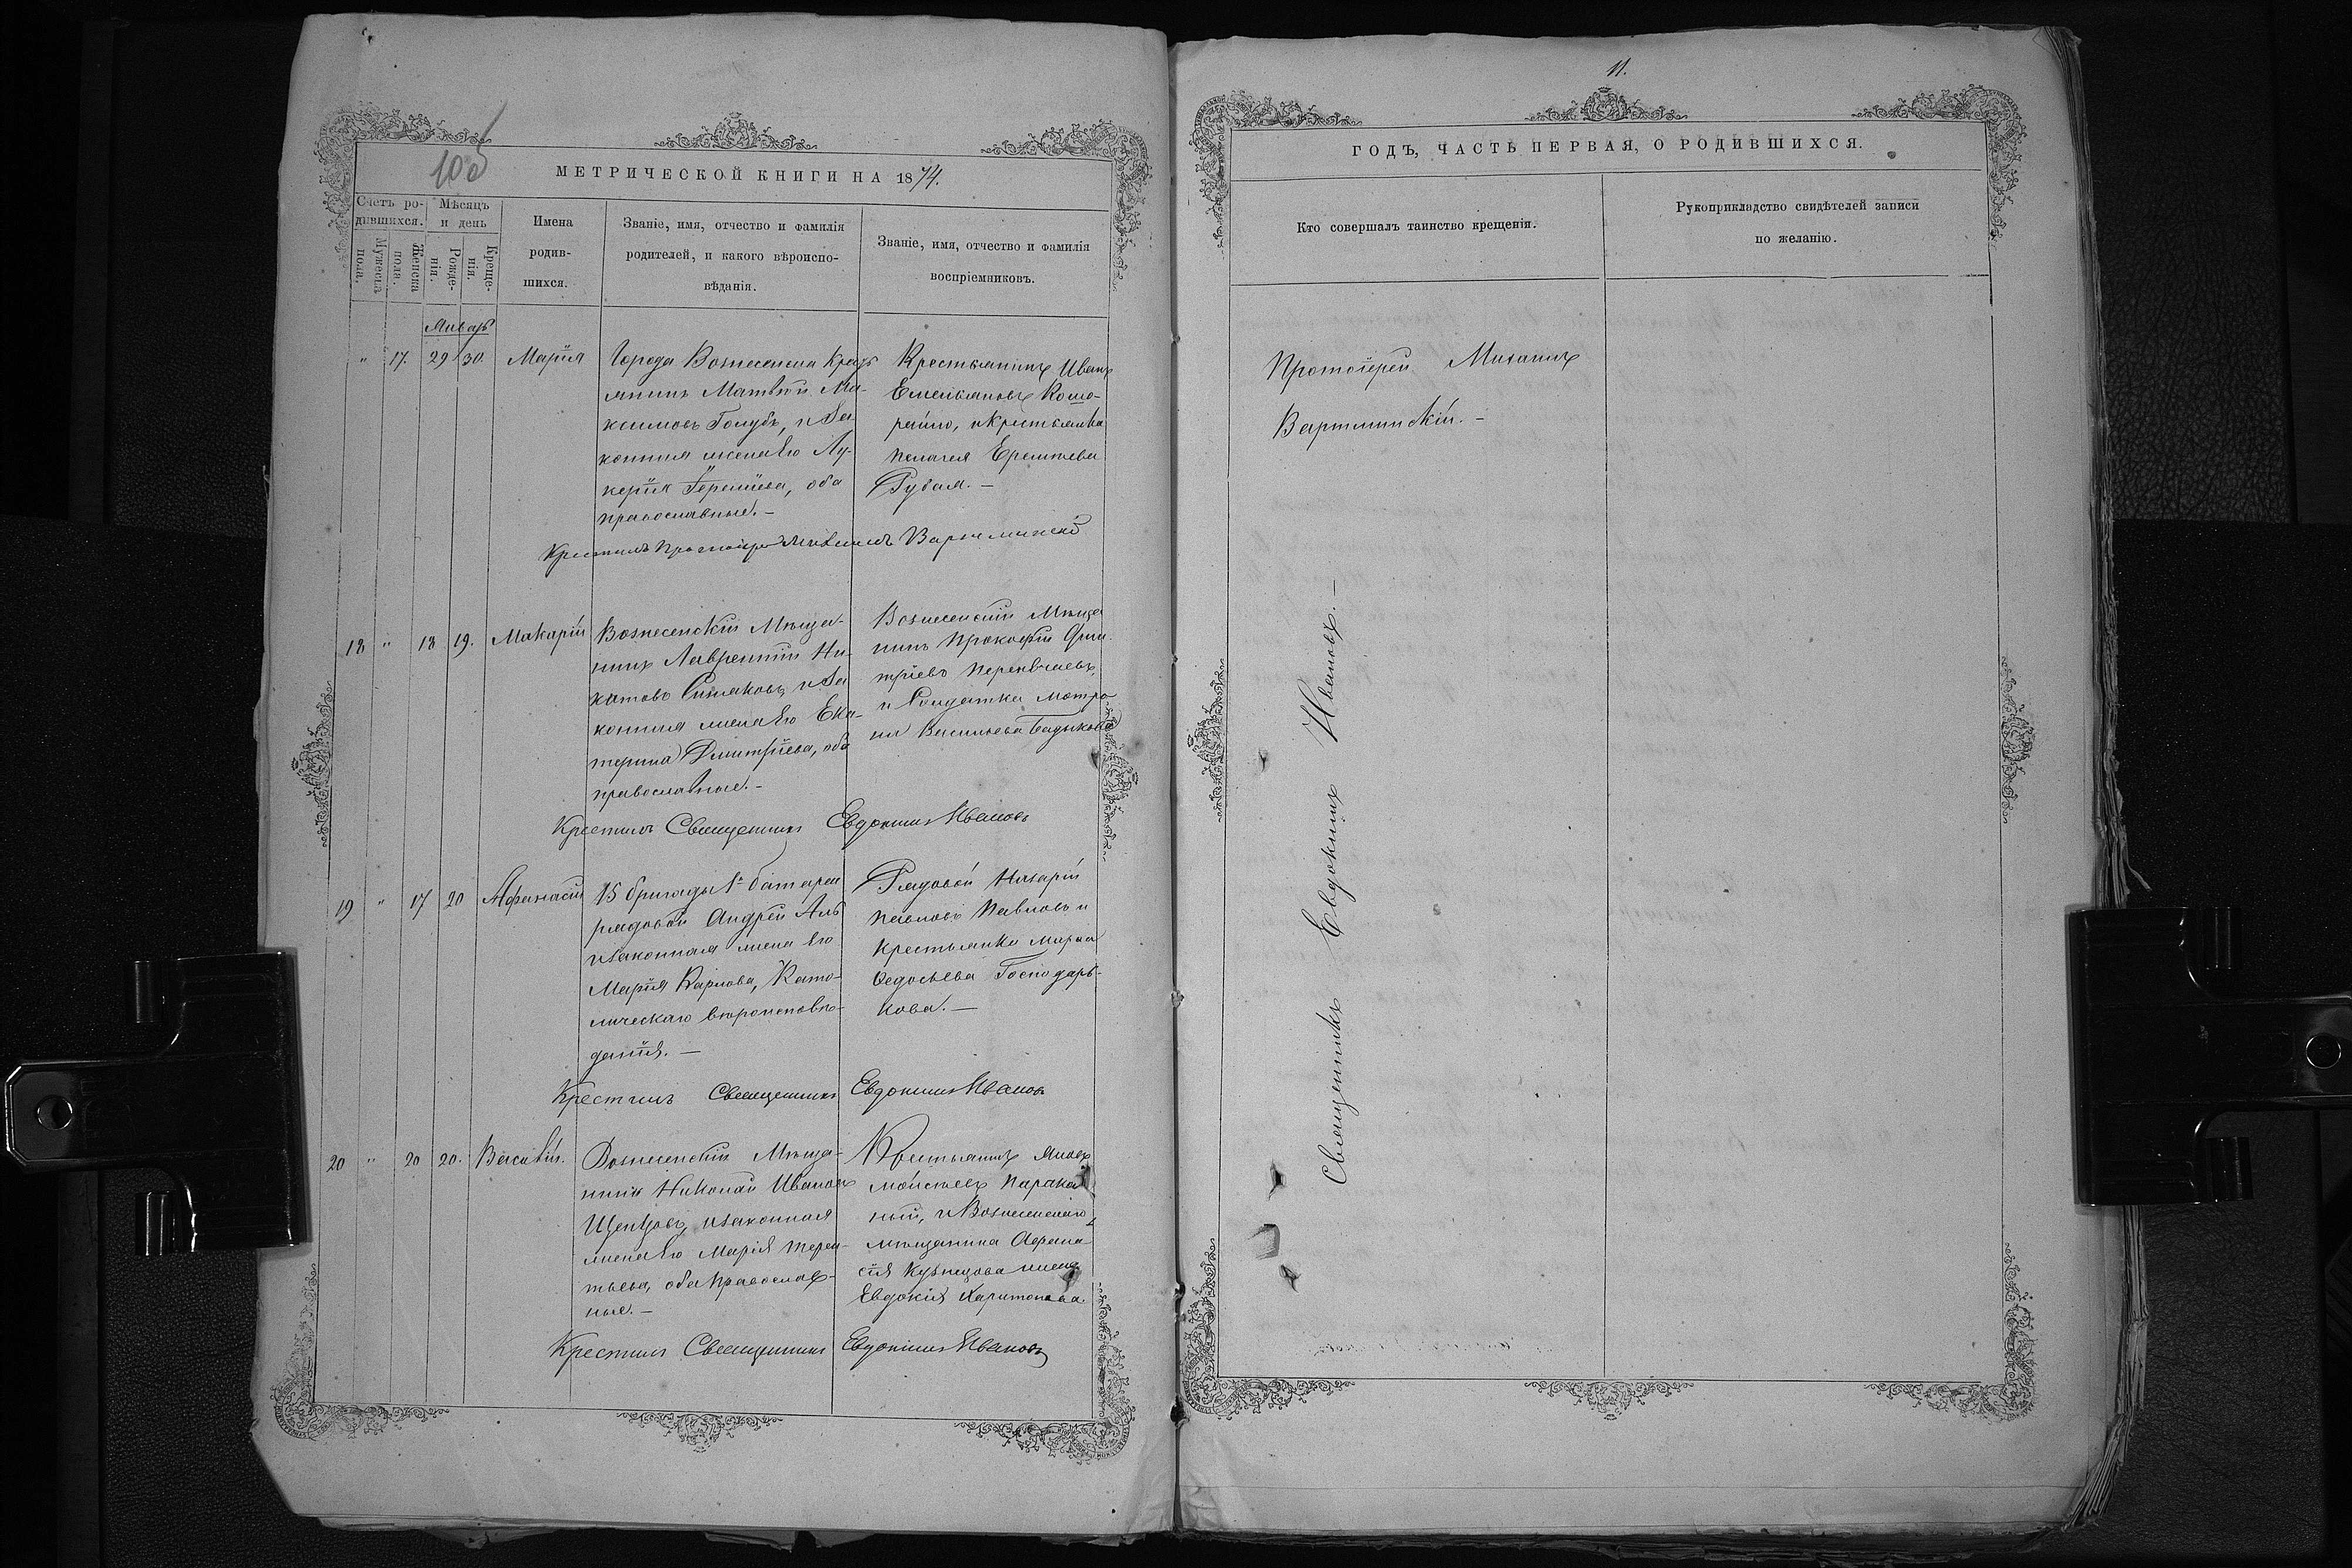 105
МЕТРИЧЕСКОЙ КНИГИ НА 1874.
Счетъ ро-
дившихся.
Мѣсяцъ
и день
Мужеска
пола.
Женска
пола.
Рожде-
нія.
Креще-
нія.
Имена
родив-
шихся.
Званіе, имя, отчество и фамилія
родителей, и какого вѣроиспо-
вѣданія.
Званіе, имя, отчество и фамилія
воспріемниковъ.
Январь
" 17. 29 30. Марія
Города Вознесенска Крестъ
янинъ Матвѣй Ма-
ксимовъ Голубъ, и за
конная жена его Лу-
керія, оба
православные.-
Крестьянинъ Иванъ
Емельяновъ Коше-
, и Крестьянка
Пелагея
Губая. -
Крестилъ Протоіерей Михаилъ Вартминскій
18 " 18 19. Макарій
Вознесенскій Мѣща-
нинъ Лаврентій Ни-
китовъ и за
конная жена его Ека-
терина Димитріева, оба
православные.-
Вознесенскій Мѣща
нинъ Прокофій Дми
тріевъ
и Солдатка Матро
на Васильева
Крестилъ Священникъ Евдокимъ Ивановъ
19 " 17 20 Афанасій
15 бригады 1й батареи
рядовой Андрей
и законная жена его
Марія Карлова, Като-
лическаго вѣроисповѣ-
данія. -
Рядовой Назарій
Павловъ Павловъ и
Крестьянка Марѳа
Ѳедосѣева Господарь-
кова. -
Крестилъ Священникъ Евдокимъ Ивановъ
20 " 20 20. Василій.
Вознесенскій Мѣща-
нинъ Николай Ивановъ
и законная
жена его Марія Терен-
тьева, оба православ-
ные. -
Крестьянинъ Яковъ
Моисѣевъ
ный, и Вознесенскаго
мѣщанина Афана
сія Кузнецова жена
Евдокія Харитонова
Крестилъ Священникъ Евдокимъ Ивановъ
11.
ГОДЪ, ЧАСТЬ ПЕРВАЯ, О РОДИВШИХСЯ.
Кто совершалъ таинство крещенія.
Рукоприкладство свидѣтелей записи
по желанію.
Протоіерей Михаилъ
Вартминскій. -
Священникъ Евдокимъ Ивановъ. -